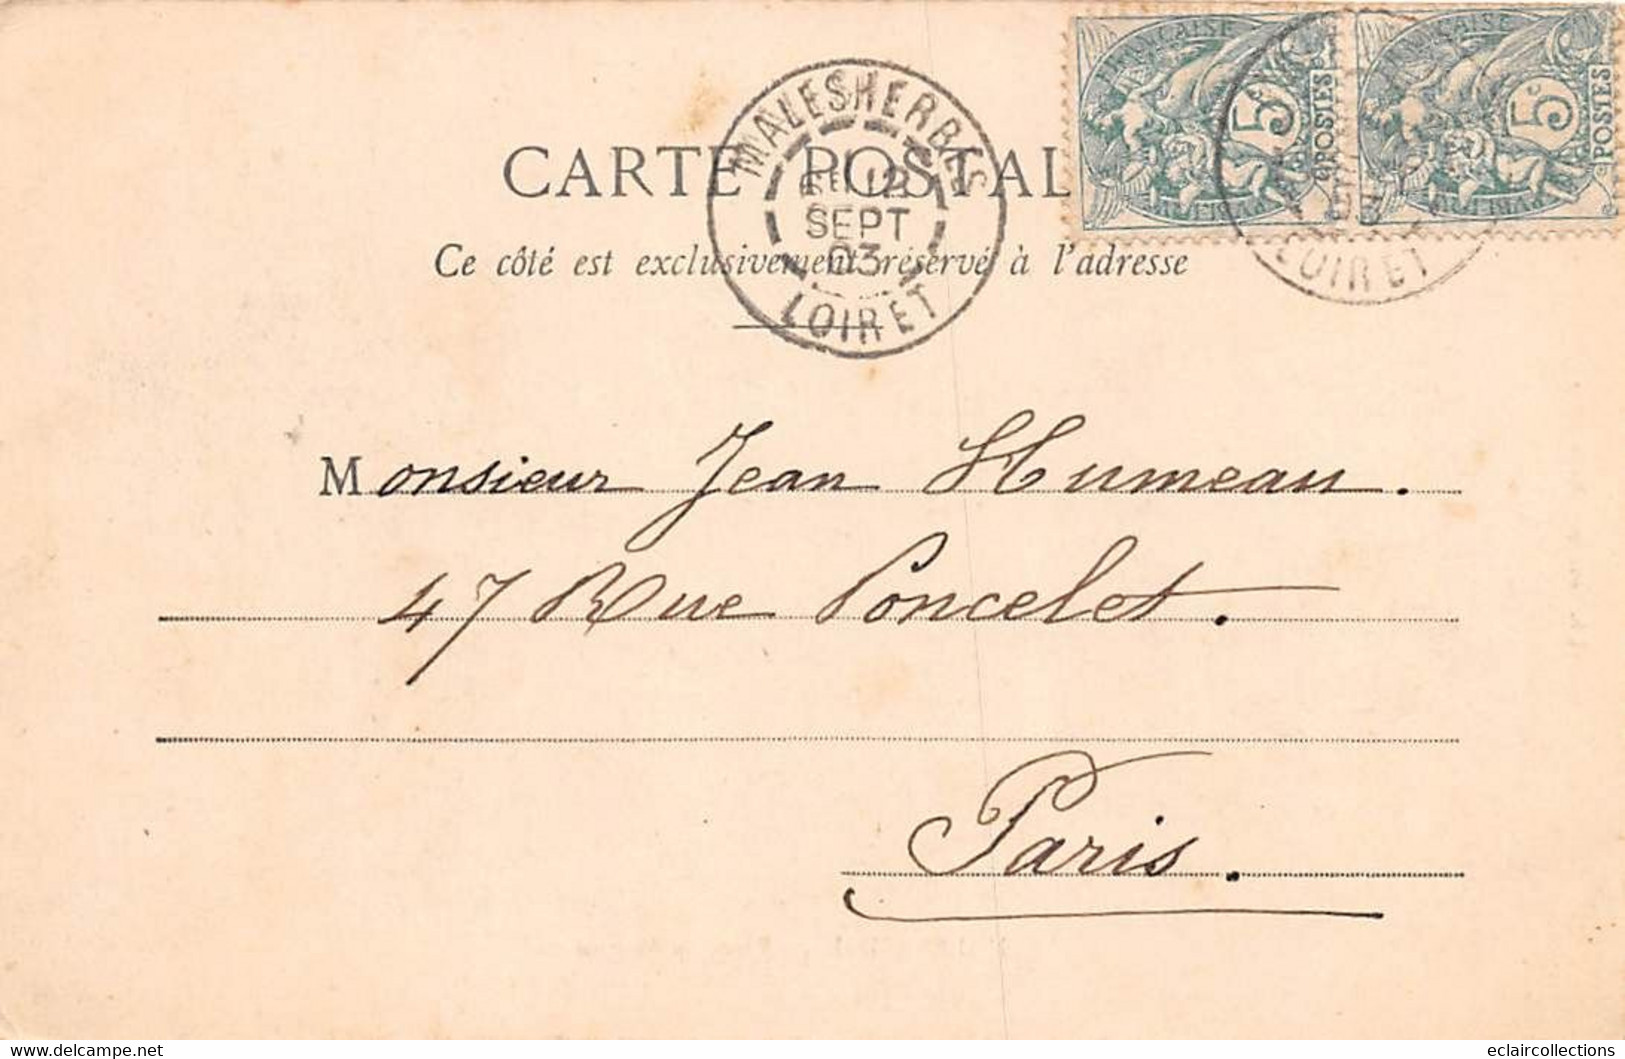 CARTE POSTALE
Ce côté est exclusivement réservé à l'adresse
MALESHERBES
12
SEPT
03
LOIRET
FRANÇAISE
5c
POSTES
FRANÇAISE
5c
POSTES
LOIRET
Monsieur Jean Humeau.
47 Rue Poncelet.
Paris.
delcampe.net
eclaircollections